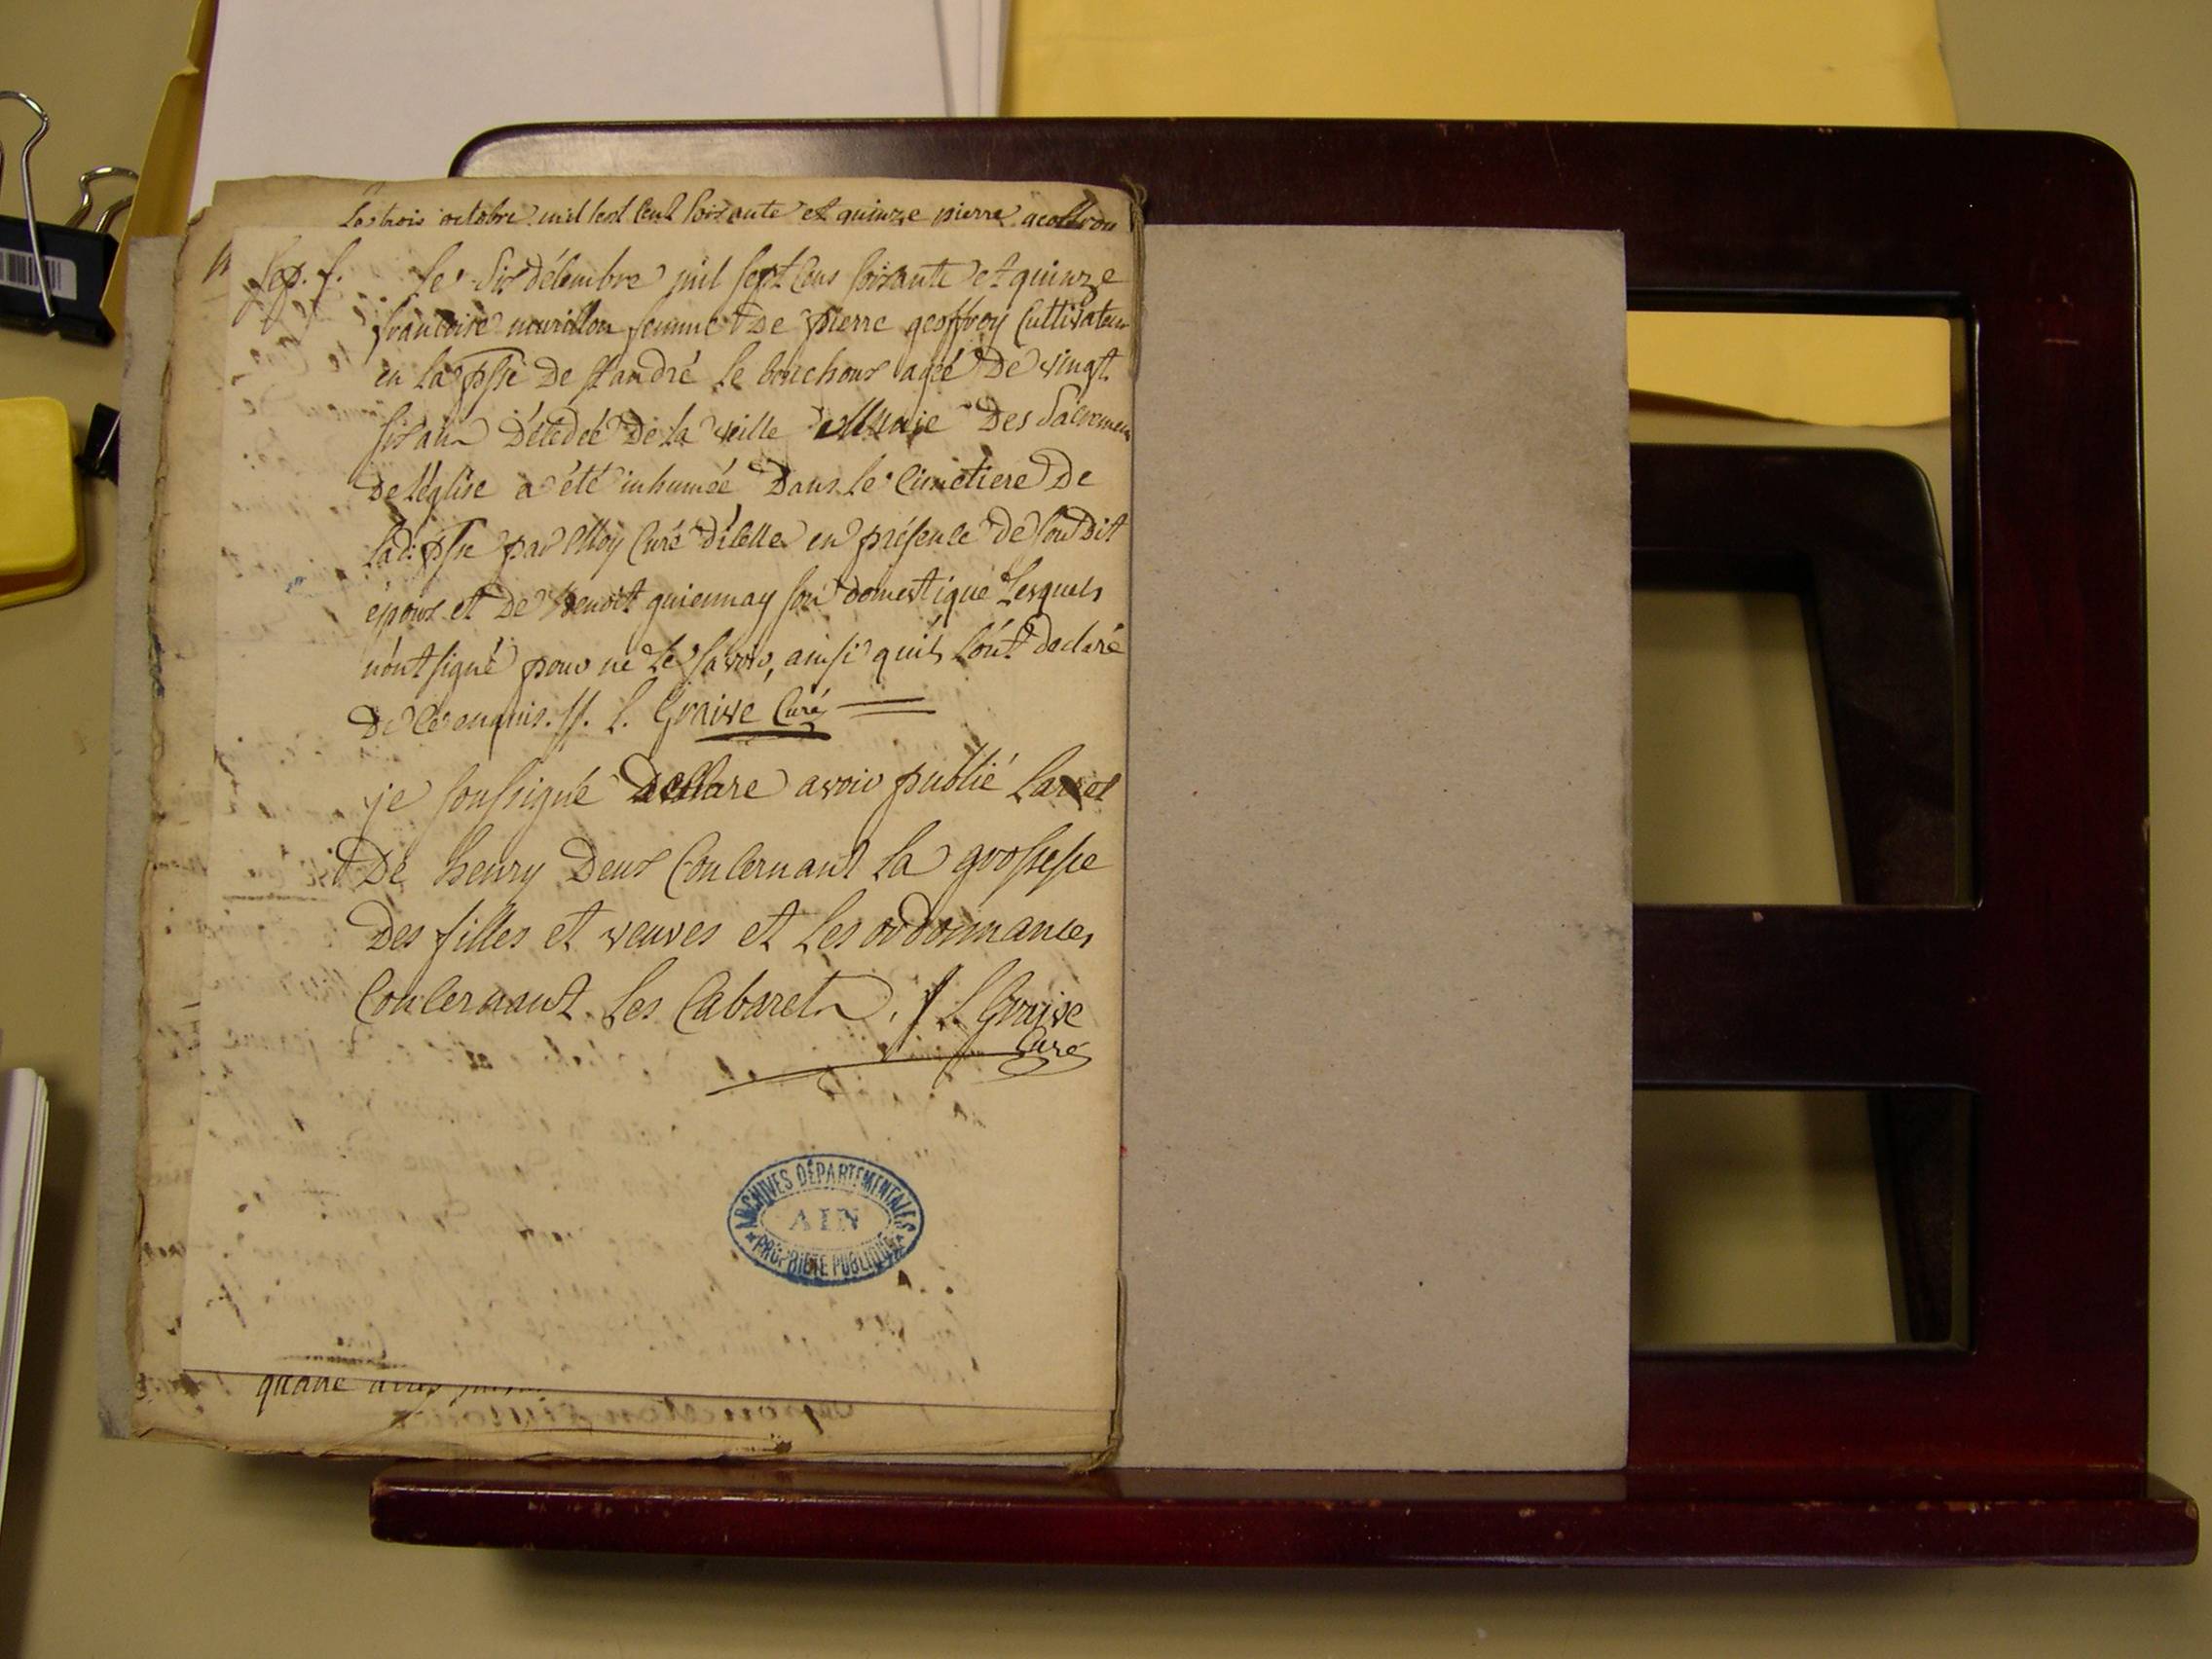 Le trois octobre mil sept Cent soixante et quinze pierre geoffroy
Sep. f.
Le Six décembre mil sept Cens soixante et quinze
françoise mourillon femme De pierre geoffroy Cultivateur
en la psse De st andré le bouchoux agée De vingt
six ans Décédée De la veille Munie Des Sacremens
De l'église a été inhumée Dans le Cimetiere De
lad. psse par Moy Curé d'icelle en présence De son Dit
époux et De benoit guiennay son domestique Lesquels
n'ont signé pour ne le savoir, ainsi quils L'ont declaré
De ce enquis. //. L. Graive Curé
je soussigné declare avoir publié L'arrêt
De henry Deux Concernant la grossesse
Des filles et veuves et Les ordonnances
Concernant Les Cabarets. / L. Graive
Curé
ARCHIVES DÉPARTEMENTALES
AIN
PROPRIÉTÉ PUBLIQUE